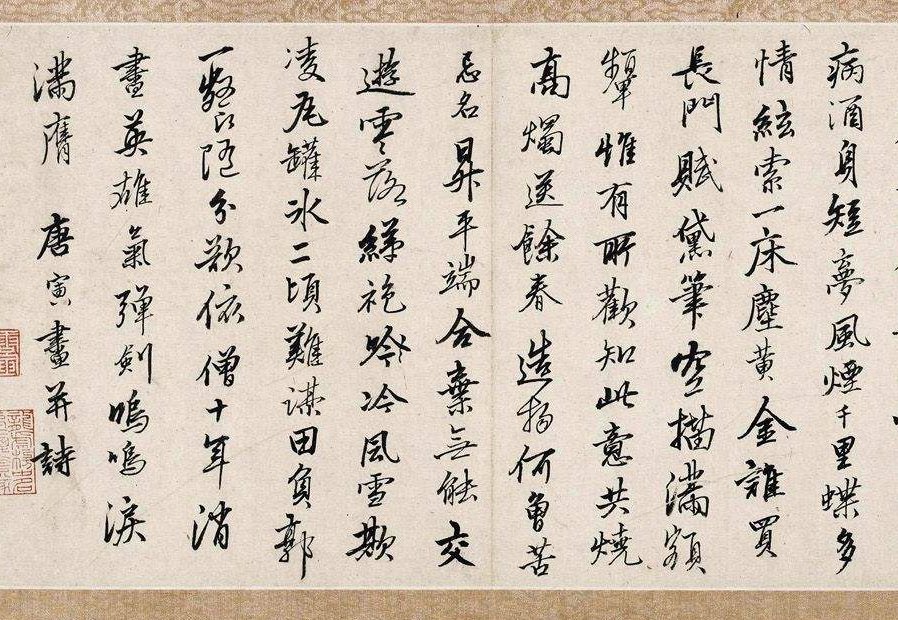 病酒身短夢風煙千里蝶多
情絃索一床塵黃金誰買
長門賦黛筆空描滿額
顰惟有所歡知此意共燒
高燭送餘春造物何曾苦
忌名昇平端合棄無能交
遊零落綈袍吟冷風雪欺
凌瓦罐冰二頃難謀田負郭
一餐隨分欲依僧十年消
盡英雄氣彈劍嗚嗚淚
滿膺 唐寅畫并詩